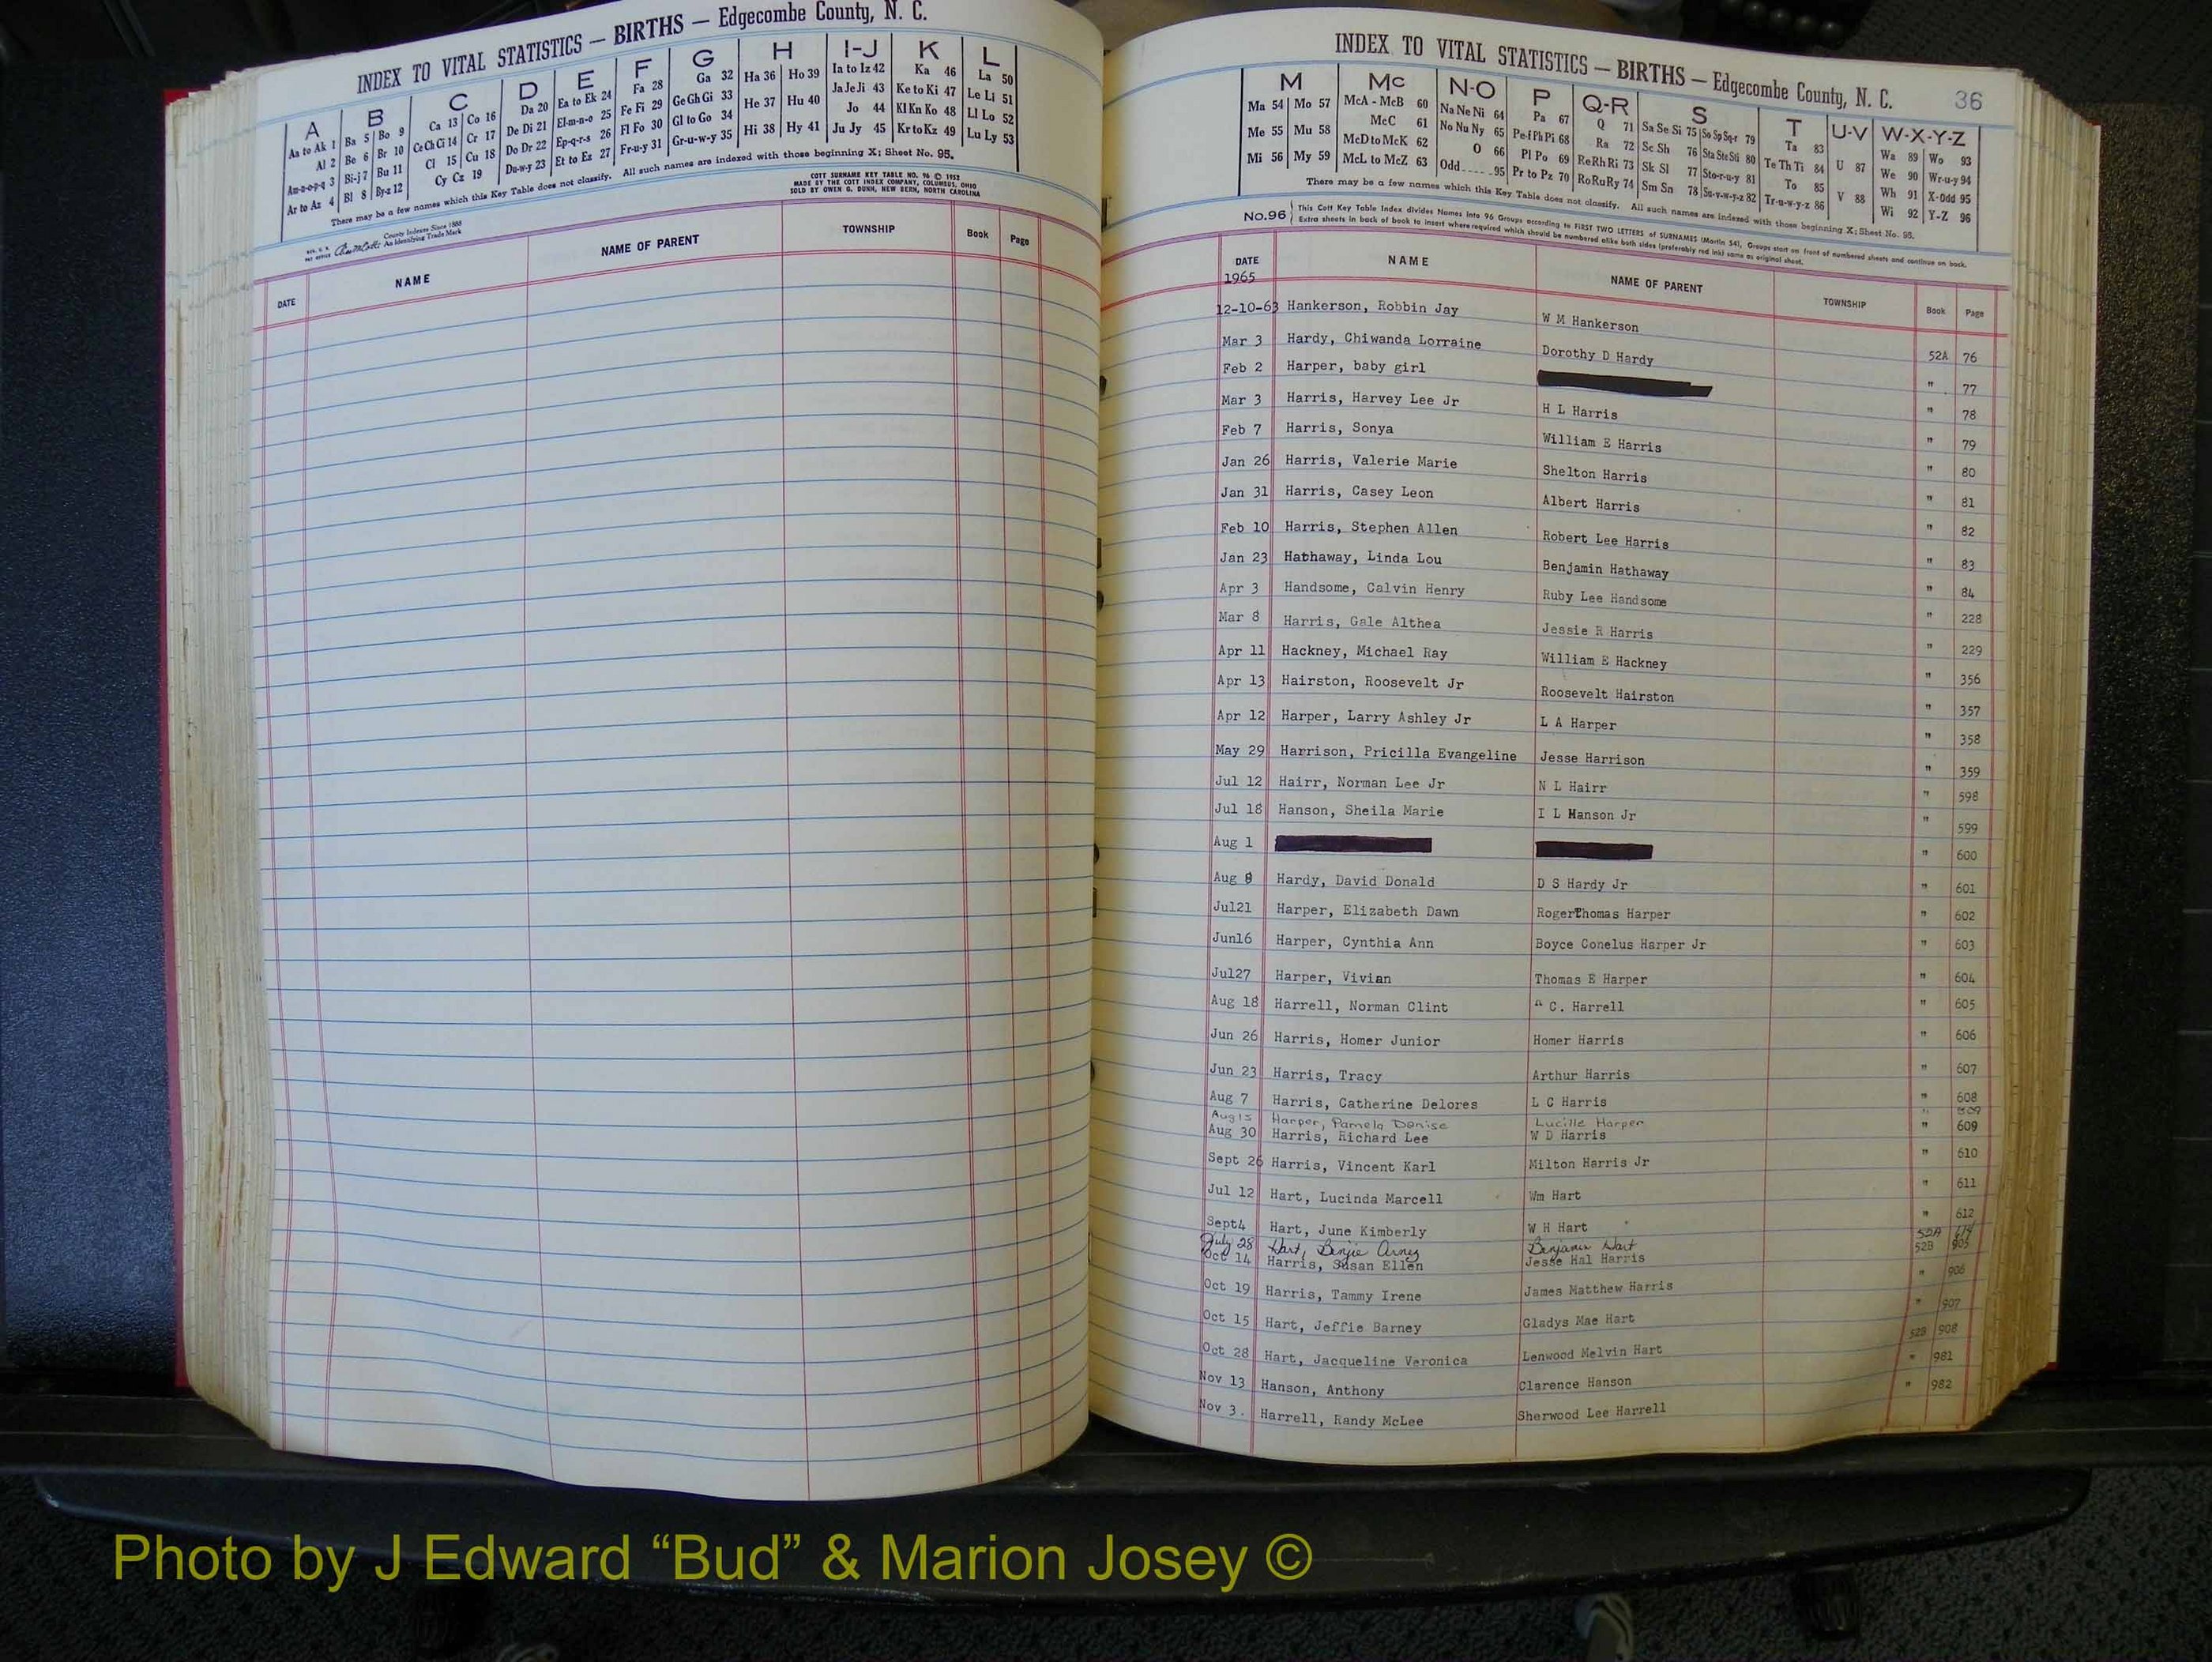 INDEX TO VITAL STATISTICS — BIRTHS — Edgecombe County, N. C.
A B C D E F G H I-J K L
Aa to Ak 1 Ba 5 Bo 9 Ca 13 Co 16 Da 20 Ea to Ek 24 Fa 28 Ga 32 Ha 36 Ho 39 Ia to Iz 42 Ka 46 La 50
Al 2 Be 6 Br 10 Ce Ch Ci 14 Cr 17 De Di 21 El-m-n-o 25 Fe Fi 29 Ge Gh Gi 33 He 37 Hu 40 Ja Je Ji 43 Ke to Ki 47 Le Li 51
Am-n-o-p-q 3 Bi-j 7 Bu 11 Cl 15 Cu 18 Do Dr 22 Ep-q-r-s 26 Fl Fo 30 Gl to Go 34 Hi 38 Hy 41 Jo 44 Kl Kn Ko 48 Ll Lo 52
Ar to Az 4 Bl 8 By-z 12 Cy Cz 19 Du-w-y 23 Et to Ez 27 Fr-u-y 31 Gr-u-w-y 35 Ju Jy 45 Kr to Kz 49 Lu Ly 53
There may be a few names which this Key Table does not classify. All such names are indexed with those beginning X; Sheet No. 95.
County Indexes Since 1888
An Identifying Trade Mark
COTT SURNAME KEY TABLE NO. 96 © 1952
MADE BY THE COTT INDEX COMPANY, COLUMBUS, OHIO
SOLD BY OWEN G. DUNN, NEW BERN, NORTH CAROLINA
DATE NAME NAME OF PARENT TOWNSHIP Book Page
INDEX TO VITAL STATISTICS — BIRTHS — Edgecombe County, N. C. 36
M Mc N-O P Q-R S T U-V W-X-Y-Z
Ma 54 Mo 57 McA - McB 60 Na Ne Ni 64 Pa 67 Q 71 Sa Se Si 75 So Sp Sq-r 79 Ta 83 U 87 Wa 89 Wo 93
Me 55 Mu 58 McC 61 No Nu Ny 65 Pe-f Ph Pi 68 Ra 72 Sc Sh 76 Sta Ste Sti 80 Te Th Ti 84 V 88 We 90 Wr-u-y 94
Mi 56 My 59 McD to McK 62 O 66 Pl Po 69 Re Rh Ri 73 Sk Sl 77 Sto-r-u-y 81 To 85 Wh 91 X-Odd 95
McL to McZ 63 Odd 95 Pr to Pz 70 Ro Ru Ry 74 Sm Sn 78 Su-v-w-y-z 82 Tr-u-w-y-z 86 Wi 92 Y-Z 96
There may be a few names which this Key Table does not classify. All such names are indexed with those beginning X; Sheet No. 95.
No. 96 This Cott Key Table Index divides Names into 96 Groups according to FIRST TWO LETTERS of SURNAMES (Martin 54), Groups start on front of numbered sheets and continue on back.
Extra sheets in back of book to insert where required which should be numbered alike both sides (preferably red ink) same as original sheet.
DATE NAME NAME OF PARENT TOWNSHIP Book Page
1965
12-10-63 Hankerson, Robbin Jay W M Hankerson 52A 76
Mar 3 Hardy, Chiwanda Lorraine Dorothy D Hardy " 77
Feb 2 Harper, baby girl " 78
Mar 3 Harris, Harvey Lee Jr H L Harris " 79
Feb 7 Harris, Sonya William E Harris " 80
Jan 26 Harris, Valerie Marie Shelton Harris " 81
Jan 31 Harris, Casey Leon Albert Harris " 82
Feb 10 Harris, Stephen Allen Robert Lee Harris " 83
Jan 23 Hathaway, Linda Lou Benjamin Hathaway " 84
Apr 3 Handsome, Calvin Henry Ruby Lee Handsome " 228
Mar 8 Harris, Gale Althea Jessie R Harris " 229
Apr 11 Hackney, Michael Ray William E Hackney " 356
Apr 13 Hairston, Roosevelt Jr Roosevelt Hairston " 357
Apr 12 Harper, Larry Ashley Jr L A Harper " 358
May 29 Harrison, Pricilla Evangeline Jesse Harrison " 359
Jul 12 Hairr, Norman Lee Jr N L Hairr " 598
Jul 18 Hanson, Sheila Marie I L Hanson Jr " 599
Aug 1 " 600
Aug 8 Hardy, David Donald D S Hardy Jr " 601
Jul21 Harper, Elizabeth Dawn RogerThomas Harper " 602
Jun16 Harper, Cynthia Ann Boyce Conelus Harper Jr " 603
Jul27 Harper, Vivian Thomas E Harper " 604
Aug 18 Harrell, Norman Clint C. Harrell " 605
Jun 26 Harris, Homer Junior Homer Harris " 606
Jun 23 Harris, Tracy Arthur Harris " 607
Aug 7 Harris, Catherine Delores L C Harris " 608
Aug 15 Harper, Pamela Denise Lucille Harper "
Aug 30 Harris, Richard Lee W D Harris " 609
Sept 26 Harris, Vincent Karl Milton Harris Jr " 610
Jul 12 Hart, Lucinda Marcell Wm Hart " 611
Sept4 Hart, June Kimberly W H Hart " 612
July 28 Hart, Benjie Benjamin Hart 52A 614
Oct 14 Harris, Susan Ellen Jesse Hal Harris 52B 905
Oct 19 Harris, Tammy Irene James Matthew Harris " 906
Oct 15 Hart, Jeffie Barney Gladys Mae Hart " 907
Oct 28 Hart, Jacqueline Veronica Lenwood Melvin Hart 52B 908
Nov 13 Hanson, Anthony Clarence Hanson " 981
Nov 3. Harrell, Randy McLee Sherwood Lee Harrell " 982
Photo by J Edward “Bud” & Marion Josey ©